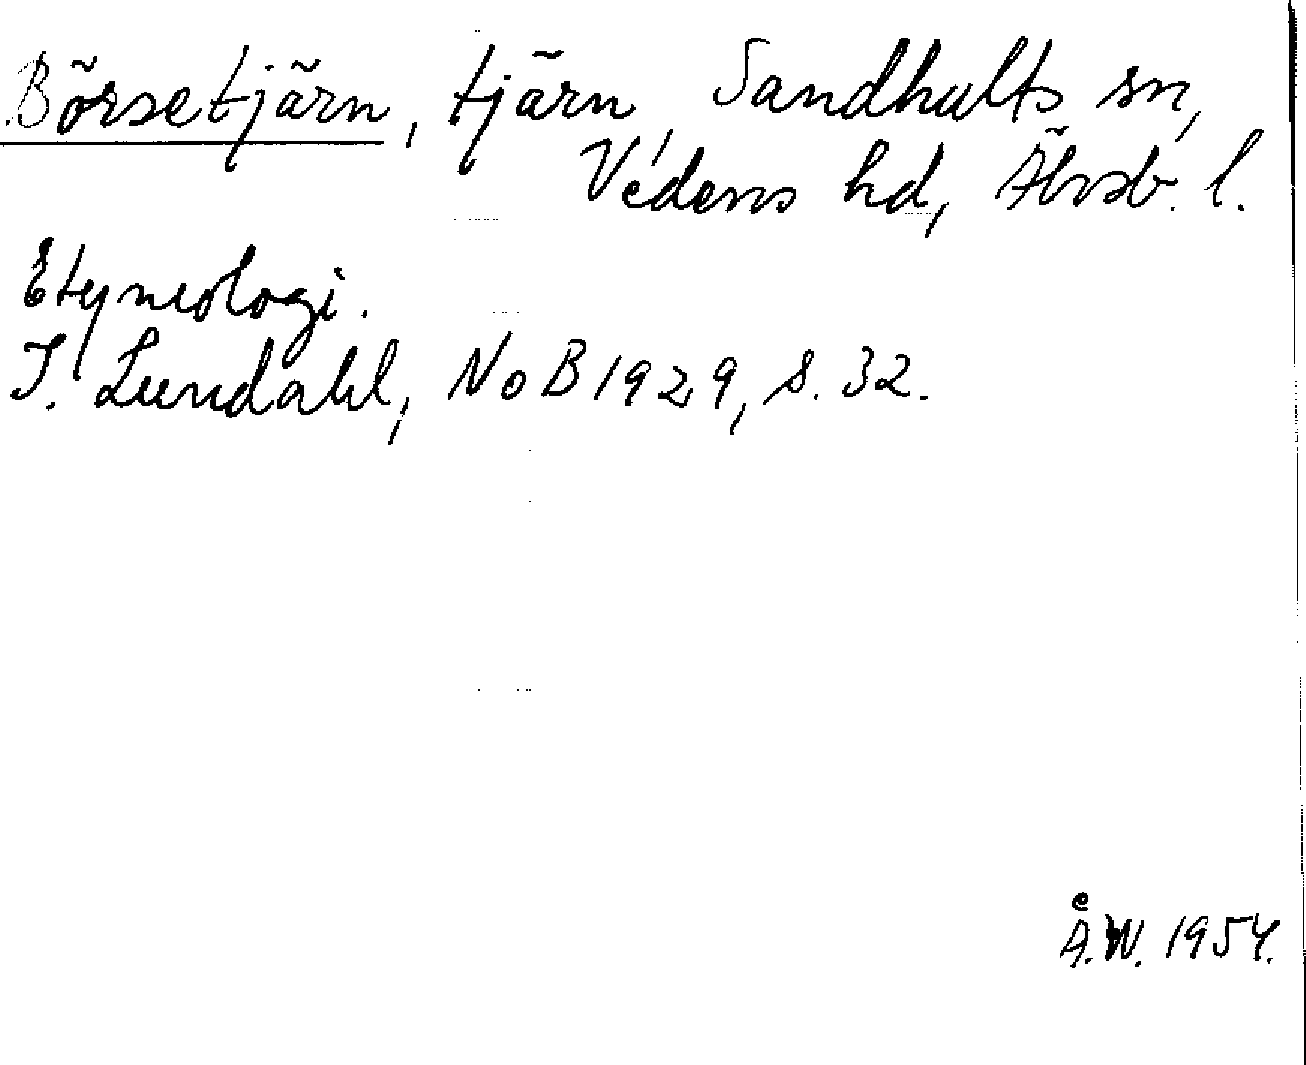 Börsetjärn, tjärn, Sandhults sn,
Vedens hd, Älvsb. l.
Etymologi.
I. Lundahl, NoB 1929, s. 32.
Å.W. 1954.